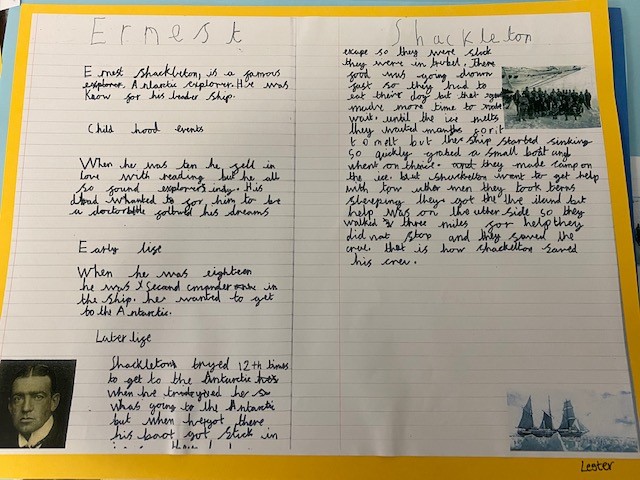 Ernest Shackleton
Ernest Shackleton, is a famous
explorer. Antarctic explorer. He was
know for his leader ship.
Child hood events
When he was ten he fell in
love with reading but he all
so found explorers indy. His
dad whanted to for him to be
a doctor but he follwd his dreams
Early life
When he was eighteen
he was second cmander in
the ship. he wanted to get
to the Antarctic.
Later life
Shackleton tryed 12th times
to get to the Antarctic his
when he tryed he so
whas going to the Antarctic
but when he got there
his boat got stick in
escape so they were stuck
they were in trubel. There
food was going down
fast so they had to
eat their dog but that
made more time to
wait until the ice melts
they waited months for it
to melt but the ship started sinking
so quickly grabed a small boat and
whent on there. and they made camp on
the ice. but shackelton went to get help
with tow uther men they took terns
sleeping they got the the iland but
help was on the uther side so they
walked 3 miles for help they
did not stop and they saved the
crue. that is how shackelton saved
his crew.
Lester